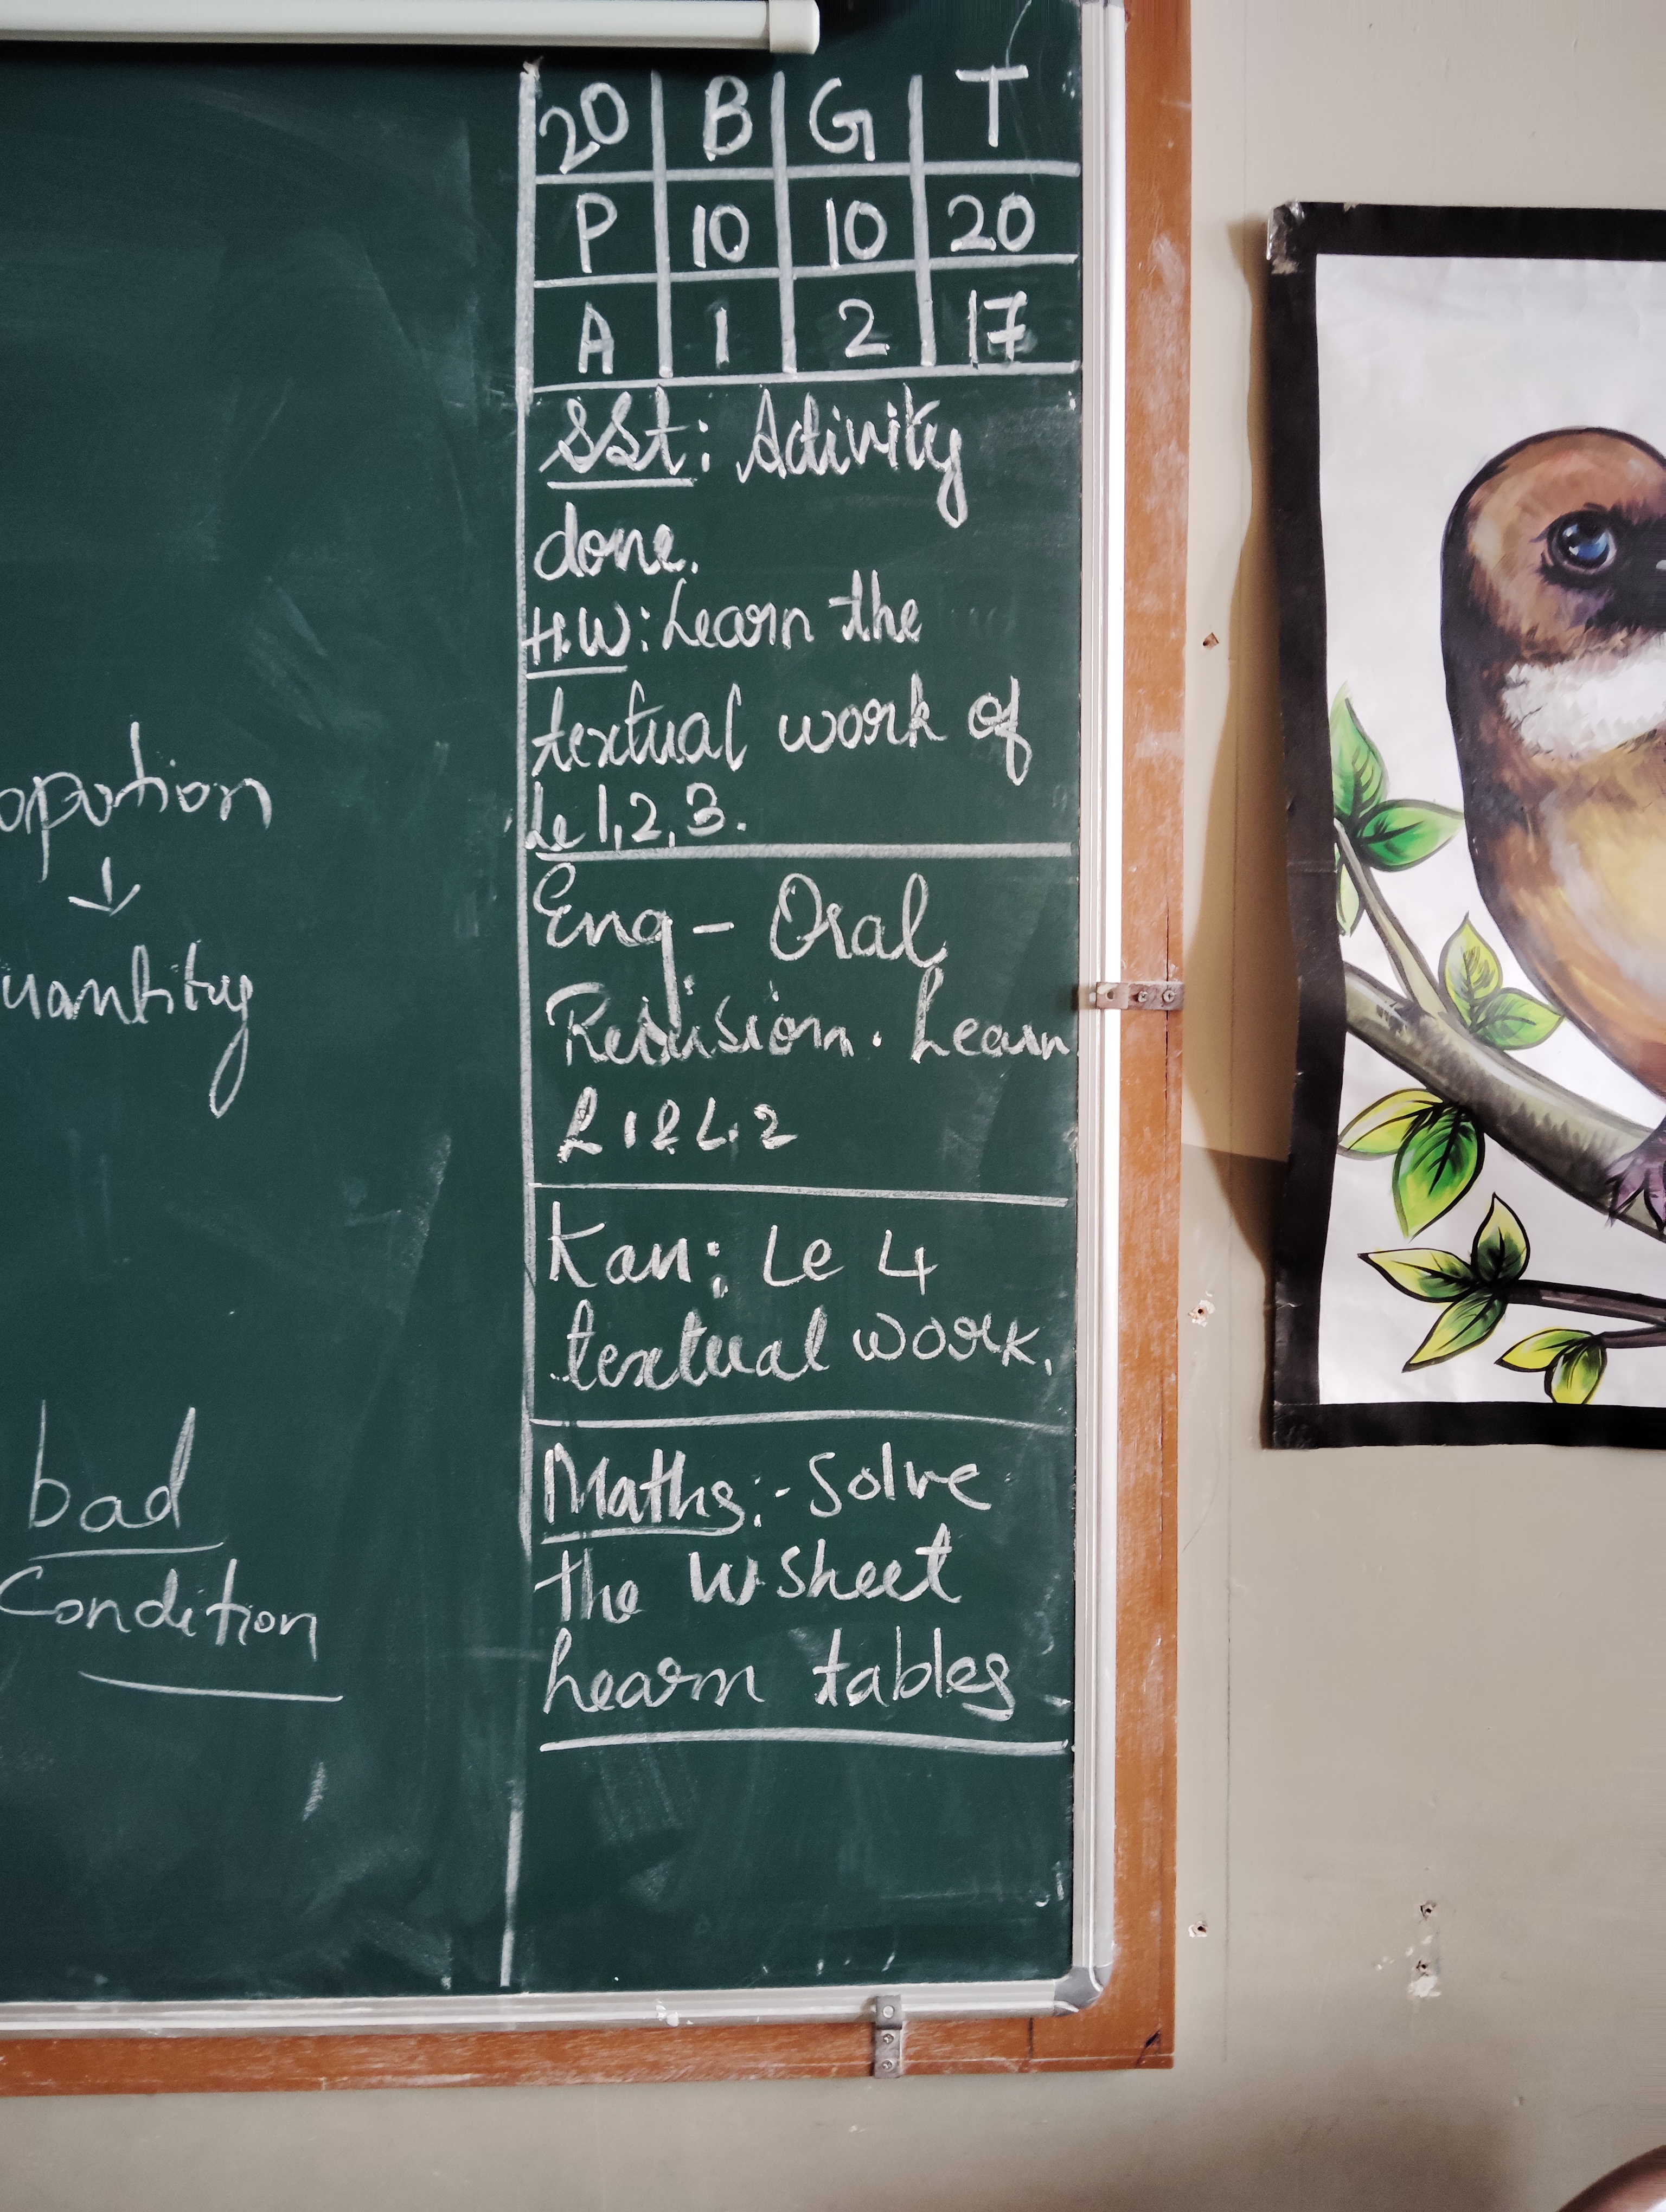 opotion
↓
uantity
bad
Condition
20 B G T
P 10 10 20
A 1 2 17
SSt: Activity
done.
H.W: Learn the
textual work of
Le 1,2,3.
Eng - Oral
Revision. Learn
L 1 & L.2
Kan: Le 4
textual work.
Maths:- Solve
the W.Sheet
Learn tables